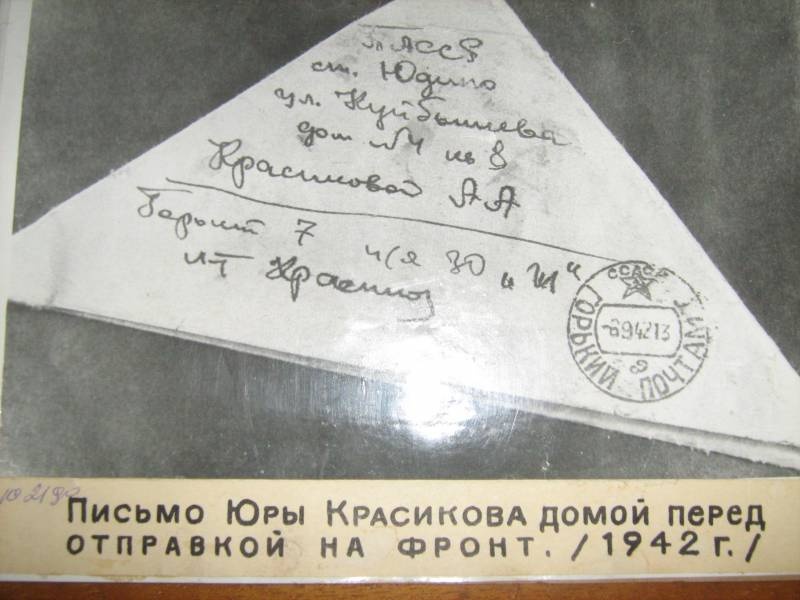 ТАССР
ст. Юдино
ул. Куйбышева
дом №4 кв 8
Красиковой АА
7 п/я 30 „Ш“
лт Красиков
СССР
694213
ГОРЬКИЙ ПОЧТАМТ
ПИСЬМО ЮРЫ КРАСИКОВА ДОМОЙ ПЕРЕД
ОТПРАВКОЙ НА ФРОНТ. /1942 г./